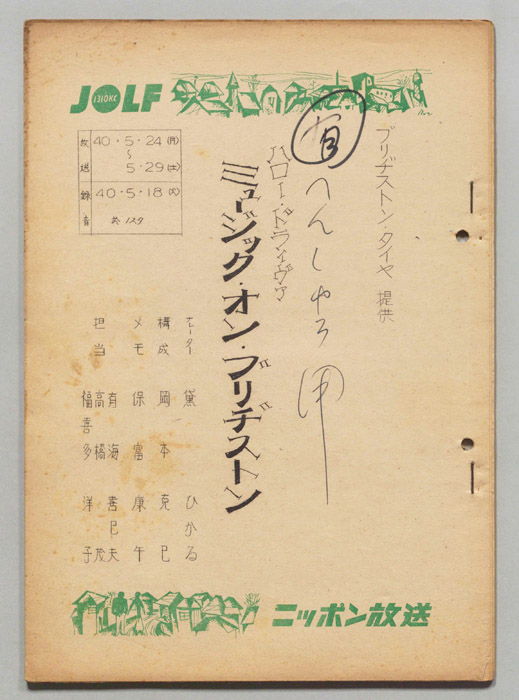 JOLF
1310KC
放送
40・5・24(月)
〜
5・29(土)
録音
40・5・18(火)
ブリヂストン・タイヤ 提供
ハロー・ドライヴァ
ミュージック・オン・ブリヂストン
へんしゅう用
黛 ひかる
構成 岡本 克己
メモ 保富 康午
担当 有海 喜巳夫
高橋 茂
福喜多 洋子
ニッポン放送